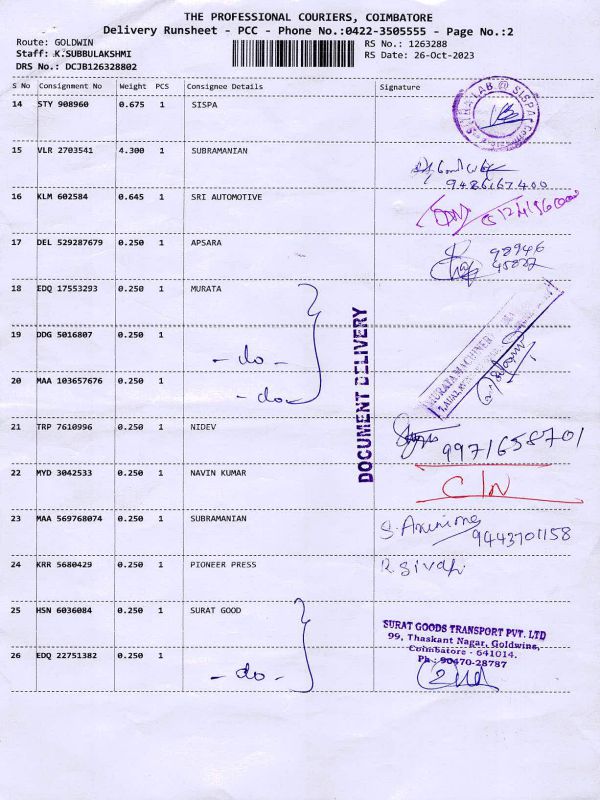 THE PROFESSIONAL COURIERS, COIMBATORE
Delivery Runsheet - PCC - Phone No.:0422-3505555 - Page No.:2
Route: GOLDWIN RS No.: 1263288
Staff: K.SUBBULAKSHMI RS Date: 26-Oct-2023
DRS No.: DCJB126328802
S No Consignment No Weight PCS Consignee Details Signature
14 STY 908960 0.675 1 SISPA
15 VLR 2703541 4.300 1 SUBRAMANIAN
16 KLM 602584 0.645 1 SRI AUTOMOTIVE
17 DEL 529287679 0.250 1 APSARA 98946
45827
18 EDQ 17553293 0.250 1 MURATA
DOCUMENT DELIVERY
19 DDG 5016807 0.250 1 - do -
20 MAA 103657676 0.250 1 - do -
21 TRP 7610996 0.250 1 NIDEV 9971658701
22 MYD 3042533 0.250 1 NAVIN KUMAR C/N
23 MAA 569768074 0.250 1 SUBRAMANIAN 9443701158
24 KRR 5680429 0.250 1 PIONEER PRESS
25 HSN 6036084 0.250 1 SURAT GOOD
SURAT GOODS TRANSPORT PVT. LTD
99, Thaskant Nagar, Goldwins,
Coimbatore - 641014.
Ph : 90470-28787
26 EDQ 22751382 0.250 1 - do -